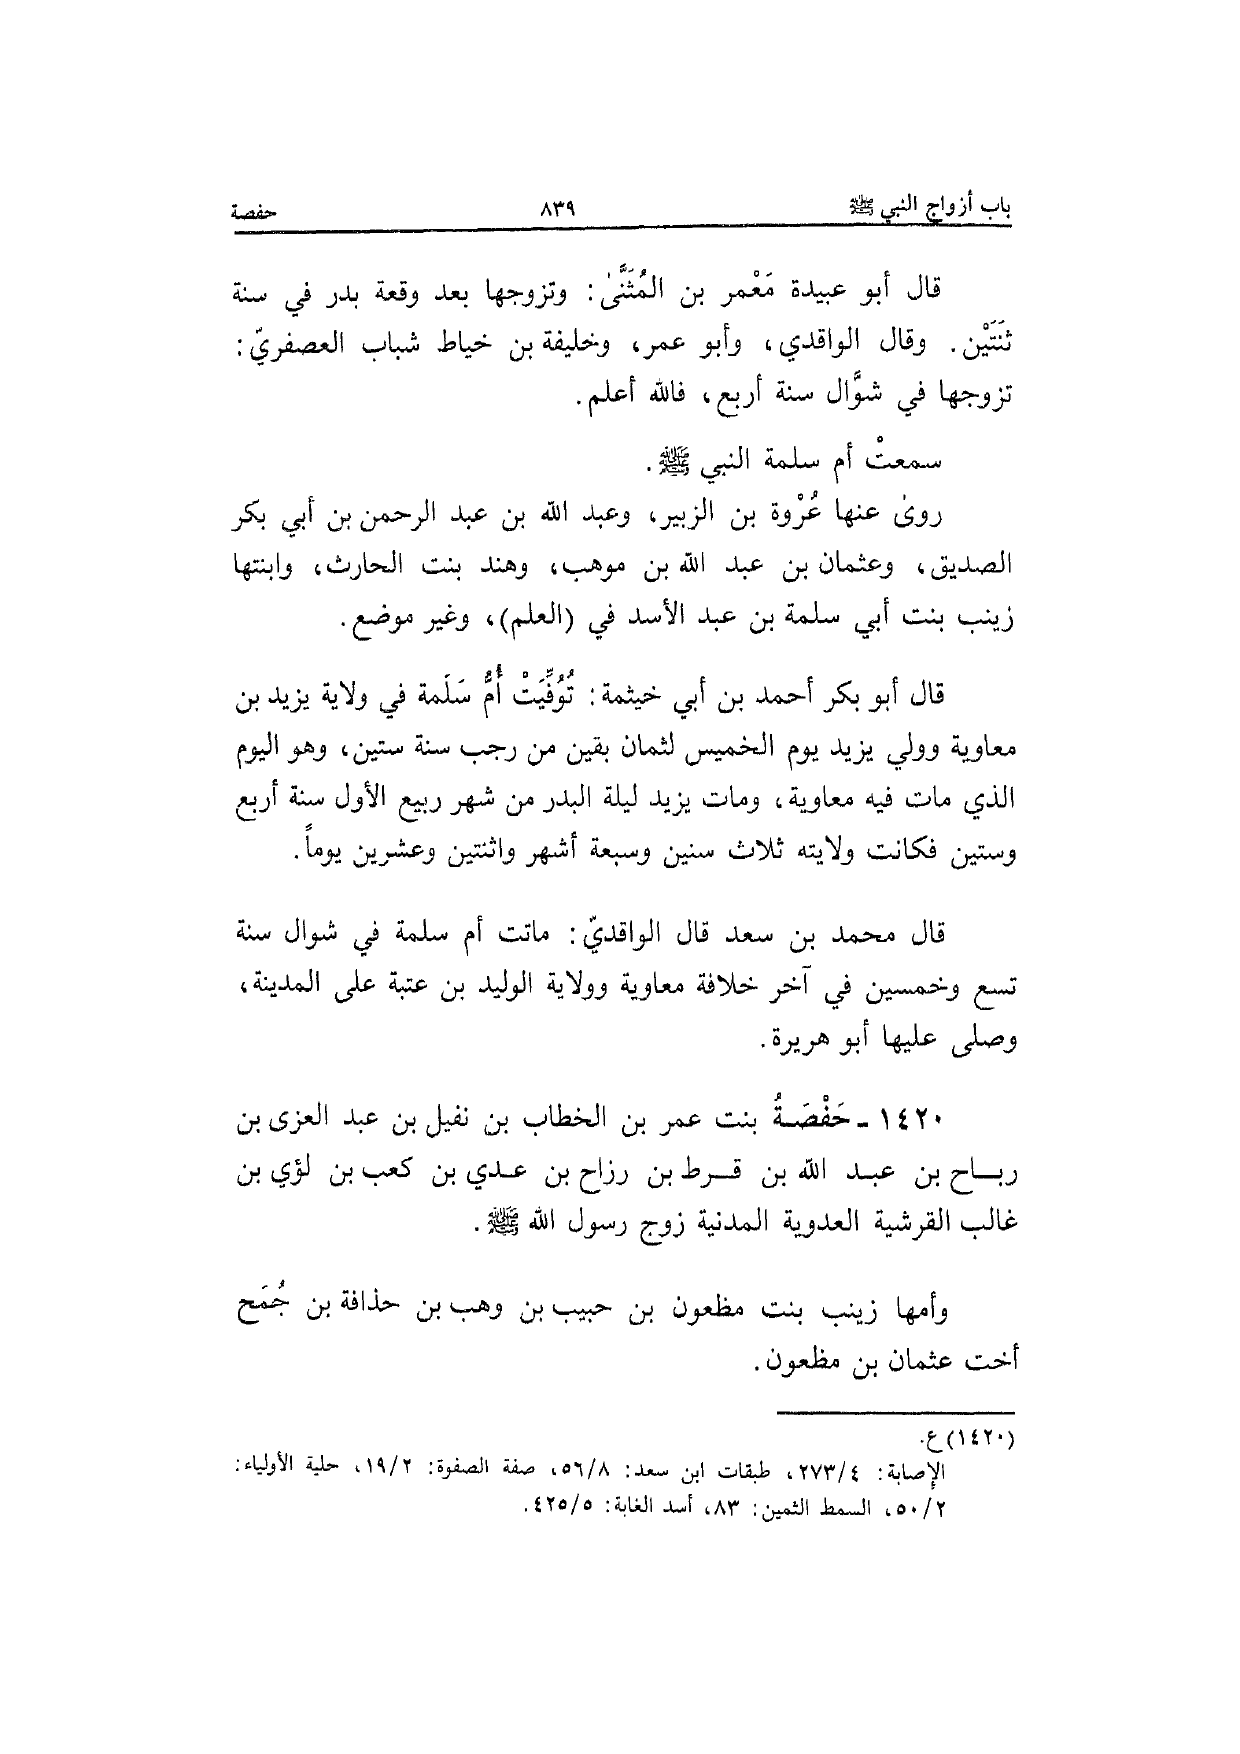 باب أزواج النبي ﷺ ٨٣٩ حفصة
قال أبو عبيدة مَعْمر بن المُثَنَّىٰ: وتزوجها بعد وقعة بدر في سنة
ثنَتَيْن. وقال الواقدي، وأبو عمر، وخليفة بن خياط شباب العصفريّ:
تزوجها في شوَّال سنة أربع، فالله أعلم.
سمعتْ أم سلمة النبي ﷺ.
روىٰ عنها عُرْوة بن الزبير، وعبد الله بن عبد الرحمن بن أبي بكر
الصديق، وعثمان بن عبد الله بن موهب، وهند بنت الحارث، وابنتها
زينب بنت أبي سلمة بن عبد الأسد في (العلم)، وغير موضع.
قال أبو بكر أحمد بن أبي خيثمة: تُوُفِّيَتْ أُمُّ سَلَمة في ولاية يزيد بن
معاوية وولي يزيد يوم الخميس لثمان بقين من رجب سنة ستين، وهو اليوم
الذي مات فيه معاوية، ومات يزيد ليلة البدر من شهر ربيع الأول سنة أربع
وستين فكانت ولايته ثلاث سنين وسبعة أشهر واثنتين وعشرين يوماً.
قال محمد بن سعد قال الواقديّ: ماتت أم سلمة في شوال سنة
تسع وخمسين في آخر خلافة معاوية وولاية الوليد بن عتبة على المدينة،
وصلى عليها أبو هريرة.
١٤٢٠ ـ حَفْصَةُ بنت عمر بن الخطاب بن نفيل بن عبد العزى بن
رباح بن عبد الله بن قرط بن رزاح بن عدي بن كعب بن لؤي بن
غالب القرشية العدوية المدنية زوج رسول الله ﷺ.
وأمها زينب بنت مظعون بن حبيب بن وهب بن حذافة بن جُمَح
أخت عثمان بن مظعون.
(١٤٢٠) ع.
الإصابة: ٢٧٣/٤، طبقات ابن سعد: ٥٦/٨، صفة الصفوة: ١٩/٢، حلية الأولياء:
٥٠/٢، السمط الثمين: ٨٣، أسد الغابة: ٤٢٥/٥.